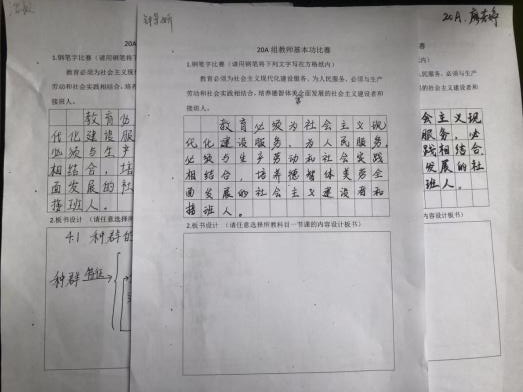 20A. 廖若婷
20A
20A 组教师基本功比赛
赛
1.钢笔字比赛（请用钢笔将下列文字写在方格纸内）
教育必须为社会主义现代化建设服务，为人民服务，必须与生产
劳动和社会实践相结合，培养德智体美劳全面发展的社会主义建设者和
接班人。
教育必须为社会主义现
代化建设服务，为人民服务，
必须与生产劳动和社会实践
相结合，培养德智体美劳全
面发展的社会主义建设者和
接班人。
2.板书设计 （请任意选择所教科目一节课的内容设计板书）
1.钢笔字比赛（请用钢笔将下列
教育必须为社会主义现
劳动和社会实践相结合，培养
接班人。
教育必
代化建设服
必须与生产
相结合，培
面发展的社
接班人。
2.板书设计 （请任意选择所
4.1 种群的
种群 特征
内）
人民服务，必须与生产
的社会主义建设者和
会主义现
服务，必
践相结合，
发展的社
班人。
内容设计板书）